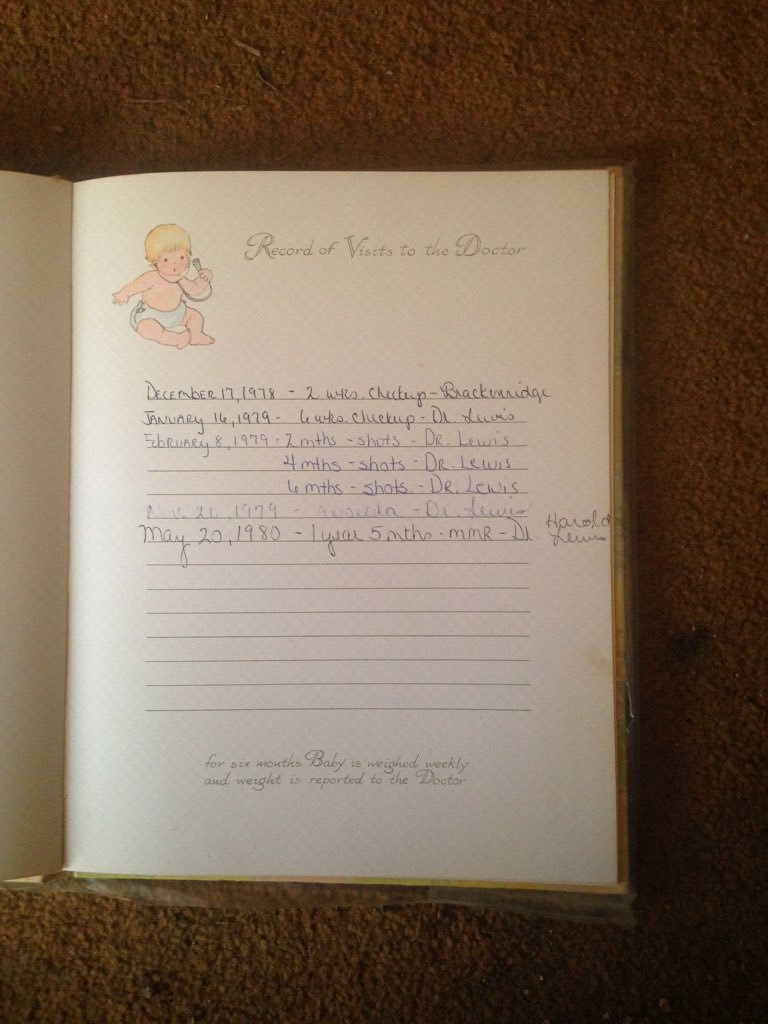 Record of Visits to the Doctor
December 17, 1978 - 2 wks. checkup - Brackenridge
January 16, 1979 - 6 wks. checkup - Dr. Lewis
February 8, 1979 - 2 mths - shots - Dr. Lewis
4 mths - shots - Dr. Lewis
6 mths - shots - Dr. Lewis
1979 - - Dr. Lewis
May 20, 1980 - 1 year 5 mths - MMR - Dr. Harold Lewis
for six months Baby is weighed weekly
and weight is reported to the Doctor